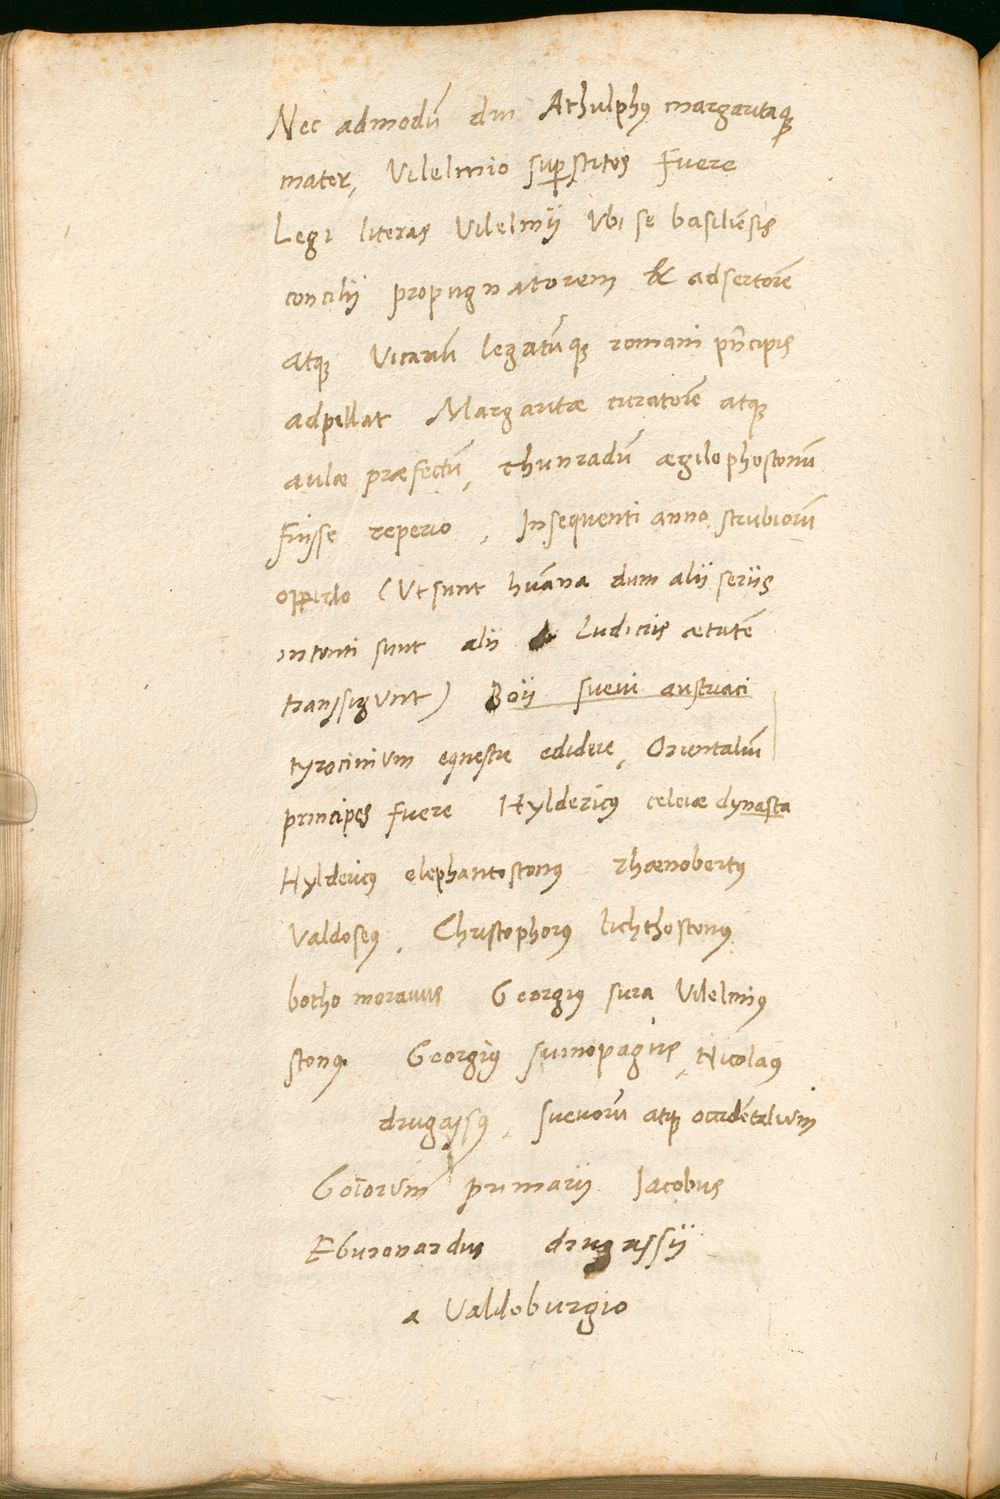 Nec admodū diu Athulphꝰ margaritaqꝫ
mater, Vilelmio suꝑstites Fuere
Legi literas Vilelmij Vbi se basiliēsis
concilij propugnatorem & adsertorē
atqꝫ Vicariū legatūqꝫ romani pn̄cipis
adpellat Margaritæ curatorē atqꝫ
aulæ præfectū, chunradū ægilophostonū
Fuisse reperio, Insequenti anno strubiorū
oppido (Vt sunt hūana dum alij serijs
intenti sunt alij Ludicris ætatē
transsigunt) Boij sueui austriaci
tyrocinium equestre edidere, Orientaliū
principes fuere Hyldericꝰ celeiæ dynasta
Hyldericꝰ elephantostonꝰ rhænobertꝰ
Valdoseꝰ, Christophorꝰ lichthostonꝰ
botho morauus Georgiꝰ sura Vilelmiꝰ
stonꝰ Georgiꝰ sumopagius, Nicolaꝰ
drugassꝰ, sueuorū atqꝫ occidētalium
Boiorum primarij Jacobus
Eburonardus drugassij
a Valdoburgio